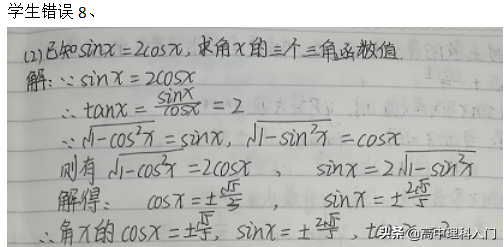 学生错误8、
(2)已知sinx=2cosx,求角x的三个三角函数值.
解:∵sinx=2cosx
∴tanx=sinx/cosx=2
∵√1-cos²x=sinx,√1-sin²x=cosx
则有√1-cos²x=2cosx、sinx=2√1-sin²x
解得:cosx=±√5/5,sinx=±2√5/5
∴角x的cosx=±√5/5,sinx=±2√5/5,
头条@高中理科入门